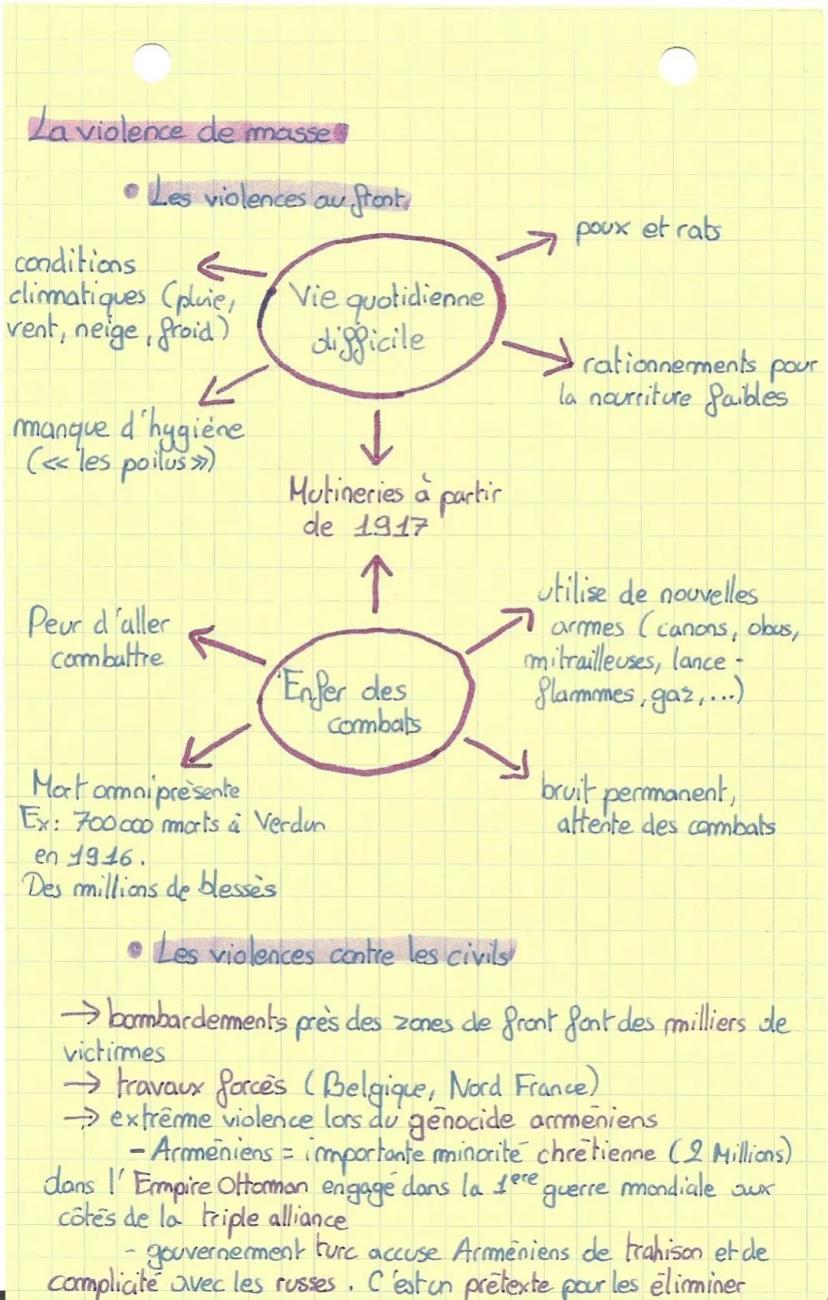 La violence de masse
• Les violences au front
poux et rats
conditions
climatiques (pluie,
vent, neige, froid)
Vie quotidienne
difficile
rationnements pour
la nourriture faibles
manque d'hygiène
(<< les poilus >>)
Mutineries à partir
de 1917
utilise de nouvelles
armes (canons, obus,
mitrailleuses, lance-
flammmes, gaz,...)
Peur d'aller
combattre
Enfer des
combats
Mort omniprésente
Ex: 700 000 morts à Verdun
en 1916.
Des millions de blessés
bruit permanent,
attente des combats
• Les violences contre les civils
→ bombardements près des zones de front font des milliers de
victimes
→ travaux forcés (Belgique, Nord France)
→ extrême violence lors du génocide arméniens
- Arméniens = importante minorité chrétienne (2 Millions)
dans l'Empire Ottoman engagé dans la 1ere guerre mondiale aux
côtés de la triple alliance
- gouvernement turc accuse Arméniens de trahison et de
complicité avec les russes. C'est un prétexte pour les éliminer